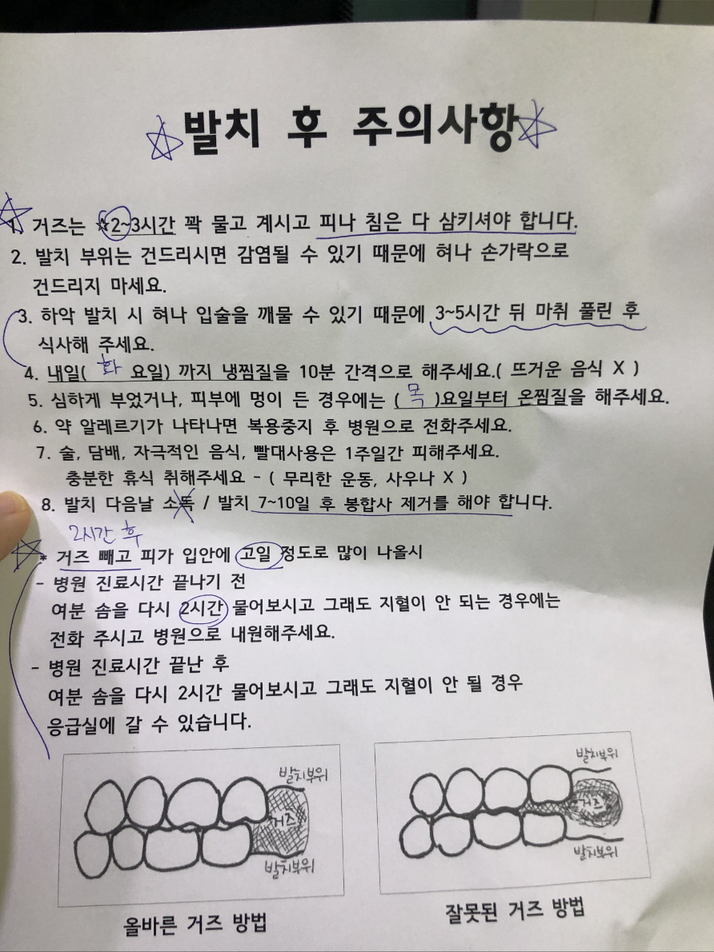 ☆발치 후 주의사항☆
1. 거즈는 ☆2~3시간 꽉 물고 계시고 피나 침은 다 삼키셔야 합니다.
2. 발치 부위는 건드리시면 감염될 수 있기 때문에 혀나 손가락으로
건드리지 마세요.
3. 하악 발치 시 혀나 입술을 깨물 수 있기 때문에 3~5시간 뒤 마취 풀린 후
식사해 주세요.
4. 내일( 화 요일) 까지 냉찜질을 10분 간격으로 해주세요.( 뜨거운 음식 X )
5. 심하게 부었거나, 피부에 멍이 든 경우에는 ( 목 )요일부터 온찜질을 해주세요.
6. 약 알레르기가 나타나면 복용중지 후 병원으로 전화주세요.
7. 술, 담배, 자극적인 음식, 빨대사용은 1주일간 피해주세요.
충분한 휴식 취해주세요 - ( 무리한 운동, 사우나 X )
8. 발치 다음날 소독 / 발치 7~10일 후 봉합사 제거를 해야 합니다.
2시간 후
* 거즈 빼고 피가 입안에 고일 정도로 많이 나올시
- 병원 진료시간 끝나기 전
여분 솜을 다시 2시간 물어보시고 그래도 지혈이 안 되는 경우에는
전화 주시고 병원으로 내원해주세요.
- 병원 진료시간 끝난 후
여분 솜을 다시 2시간 물어보시고 그래도 지혈이 안 될 경우
응급실에 갈 수 있습니다.
발치부위
거즈
발치부위
올바른 거즈 방법
발치부위
거즈
발치부위
잘못된 거즈 방법